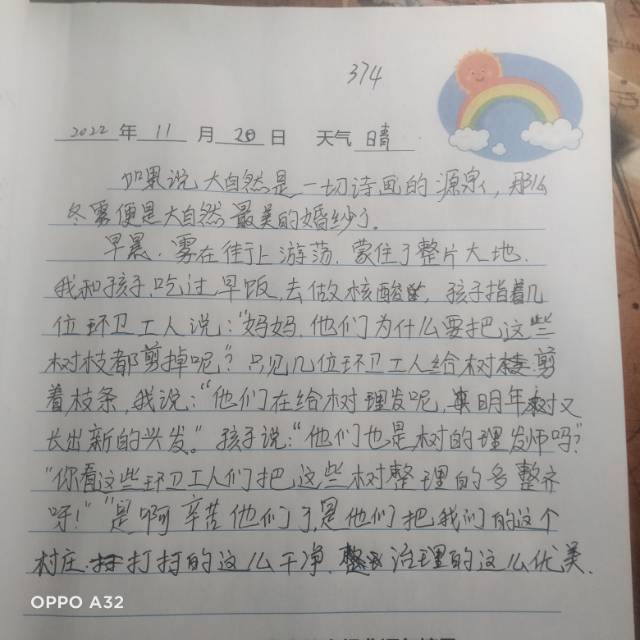 374
2022 年 11 月 20 日 天气 晴
如果说大自然是一切诗画的源泉，那么
冬雾便是大自然最美的婚纱了。
早晨，雾在街上游荡，蒙住了整片大地，
我和孩子吃过早饭，去做核酸，孩子指着几
位环卫工人说："妈妈，他们为什么要把这些
树枝都剪掉呢？"只见几位环卫工人给树剪
着枝条，我说："他们在给树理发呢，明年树又
长出新的头发。"孩子说："他们也是树的理发师吗？"
"你看这些环卫工人们把这些树整理的多整齐
呀！""是啊辛苦他们了，是他们把我们的这个
村庄打扫的这么干净，治理的这么优美.
OPPO A32